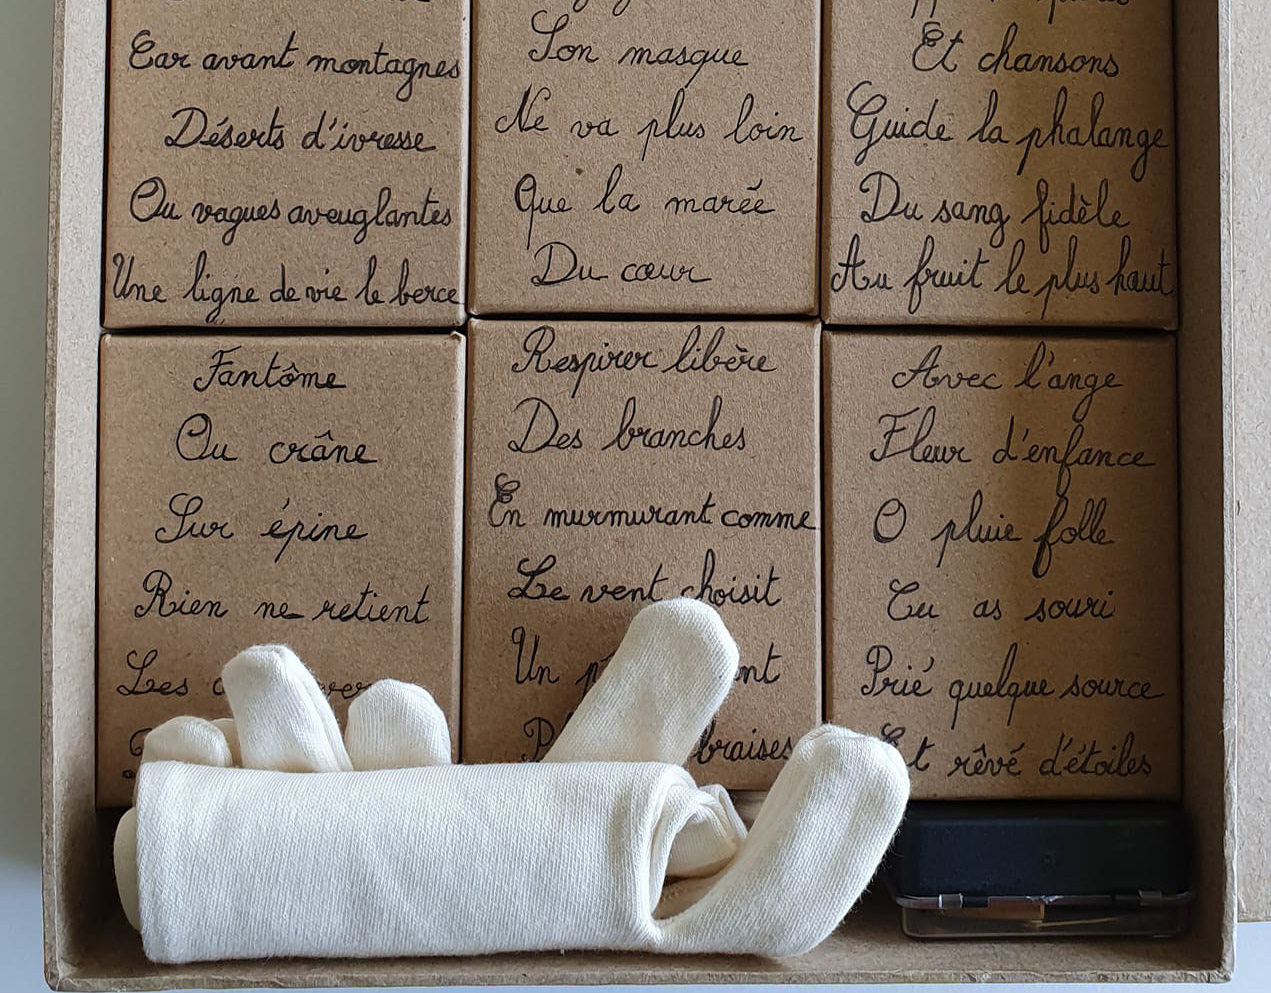 Car avant montagnes
Déserts d'ivresse
Ou vagues aveuglantes
Une ligne de vie le berce
Son masque
Ne va plus loin
Que la marée
Du cœur
Et chansons
Guide la phalange
Du sang fidèle
Au fruit le plus haut
Fantôme
Ou crâne
Sur épine
Rien ne retient
Les
Respirer libère
Des branches
En murmurant comme
Le vent choisit
Un
braises
Avec l'ange
Fleur d'enfance
O pluie folle
Tu as souri
Prié quelque source
Et rêvé d'étoiles